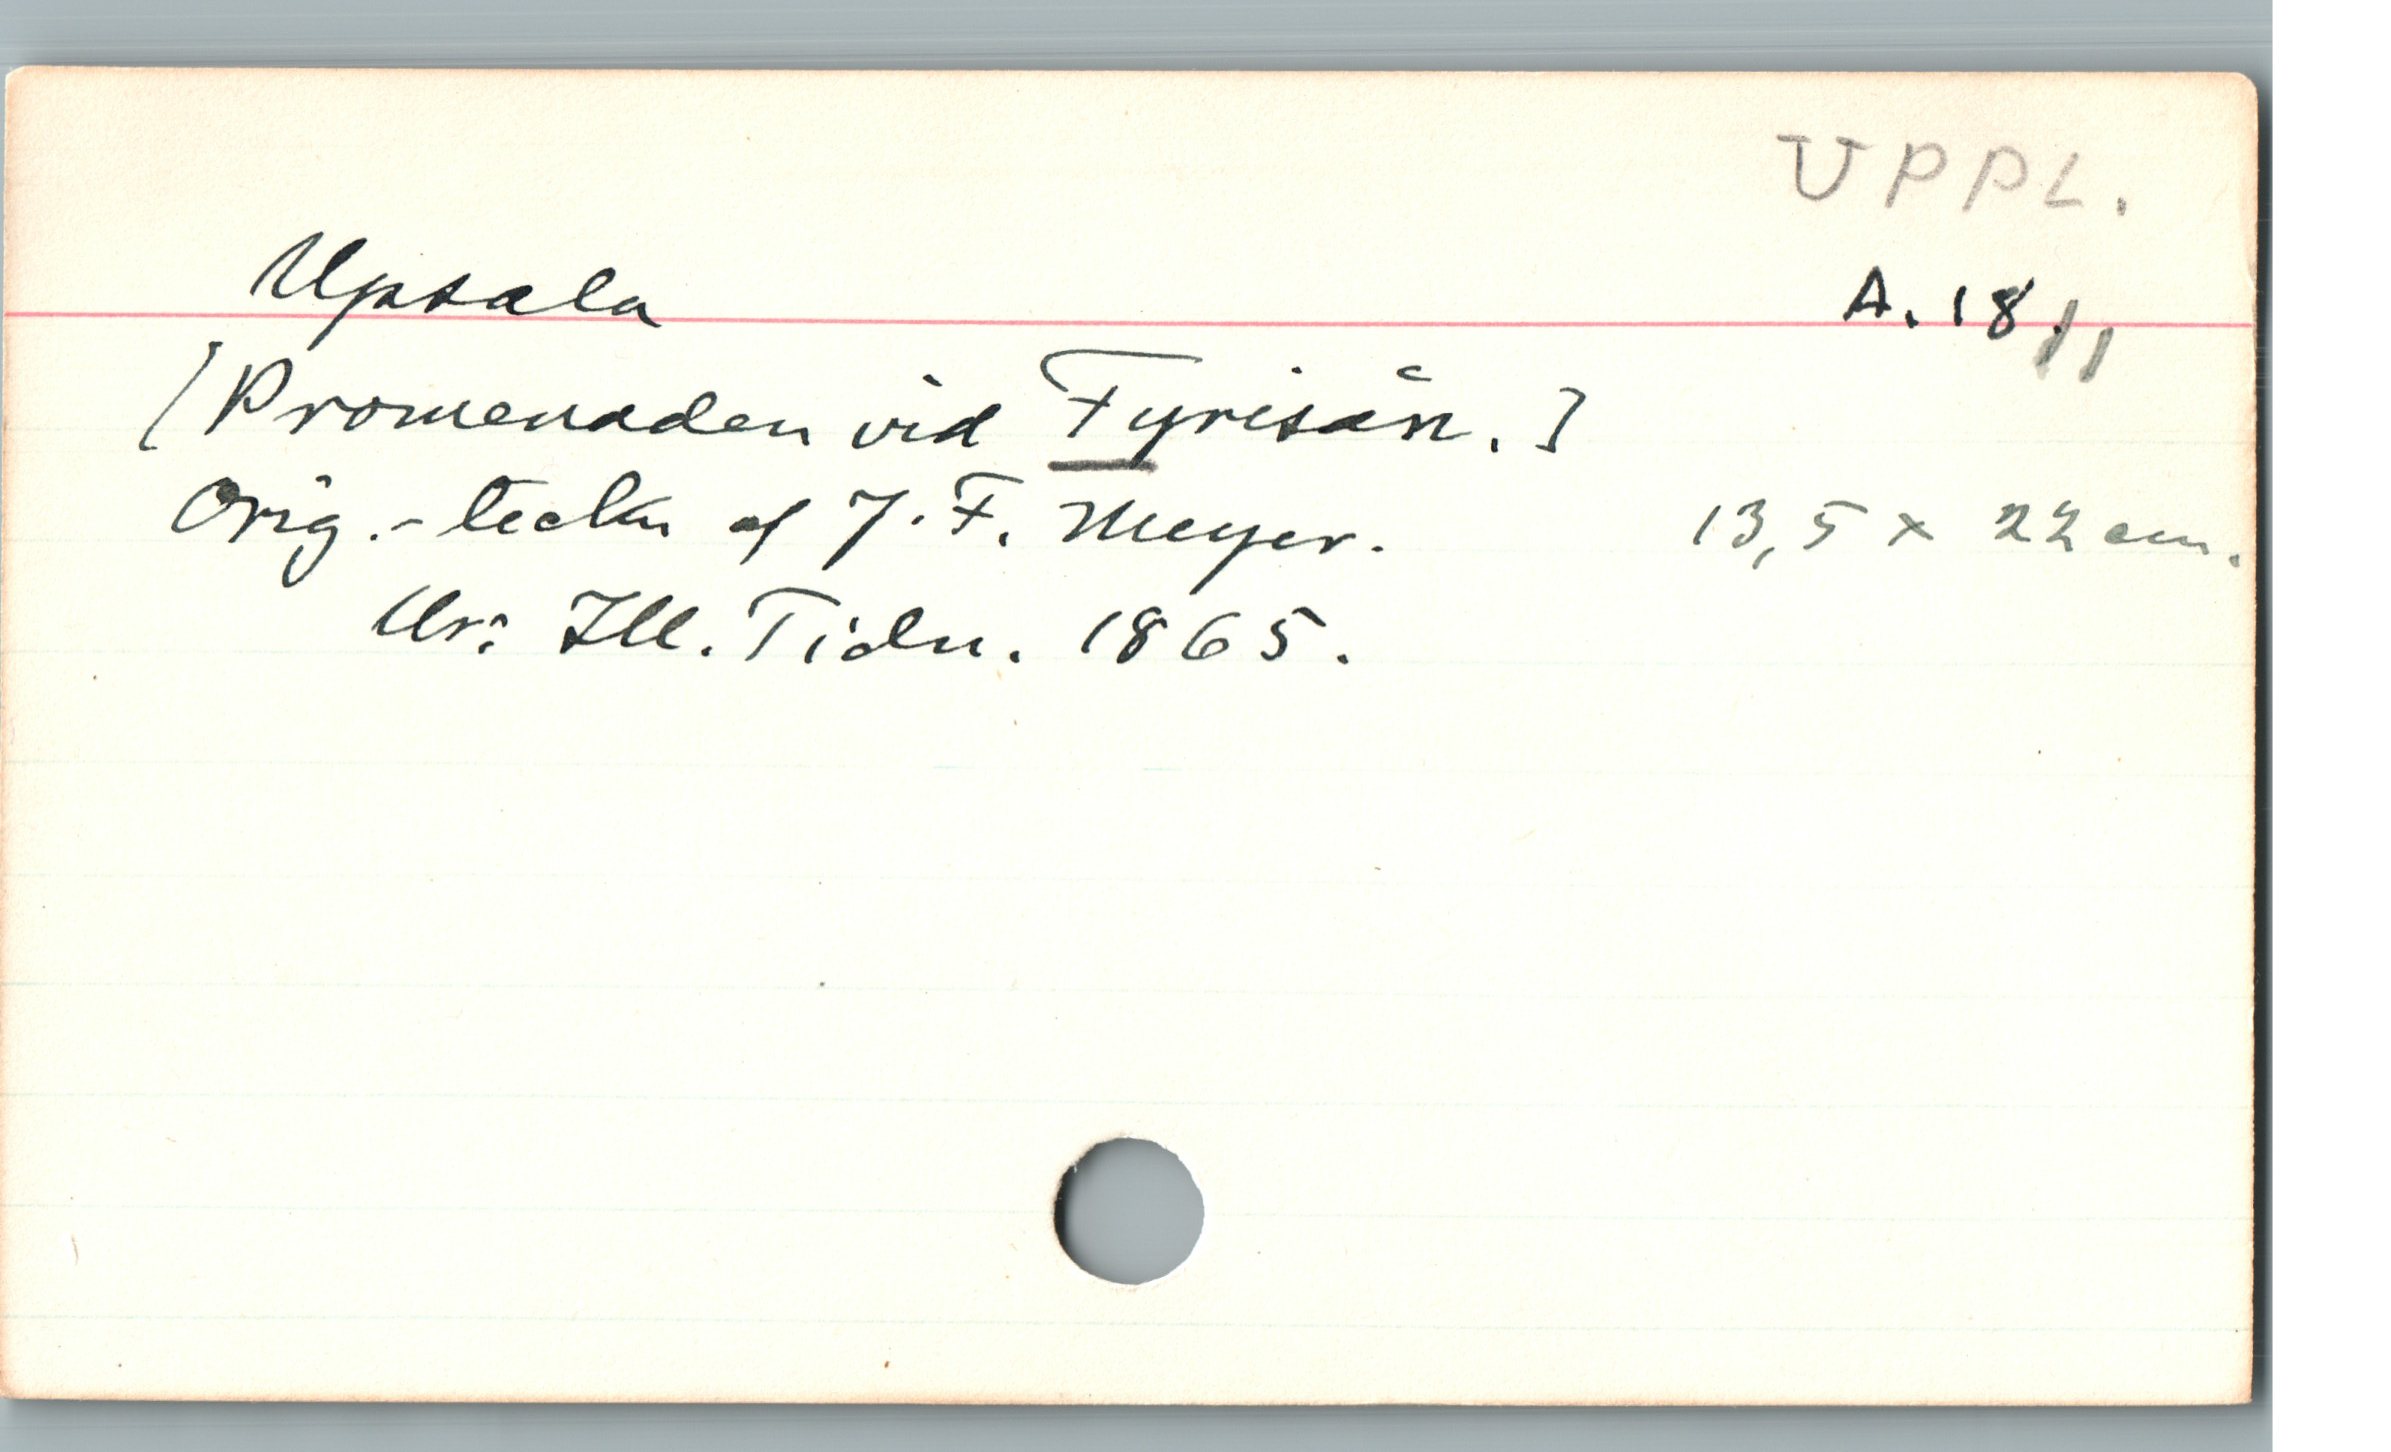 UPPL.
Upsala A. 18.11
[Promenaden vid Fyrisån.]
Orig.-teckn af J. F. Meyer. 13,5 x 22 cm.
Ur: Ill. Tidn. 1865.